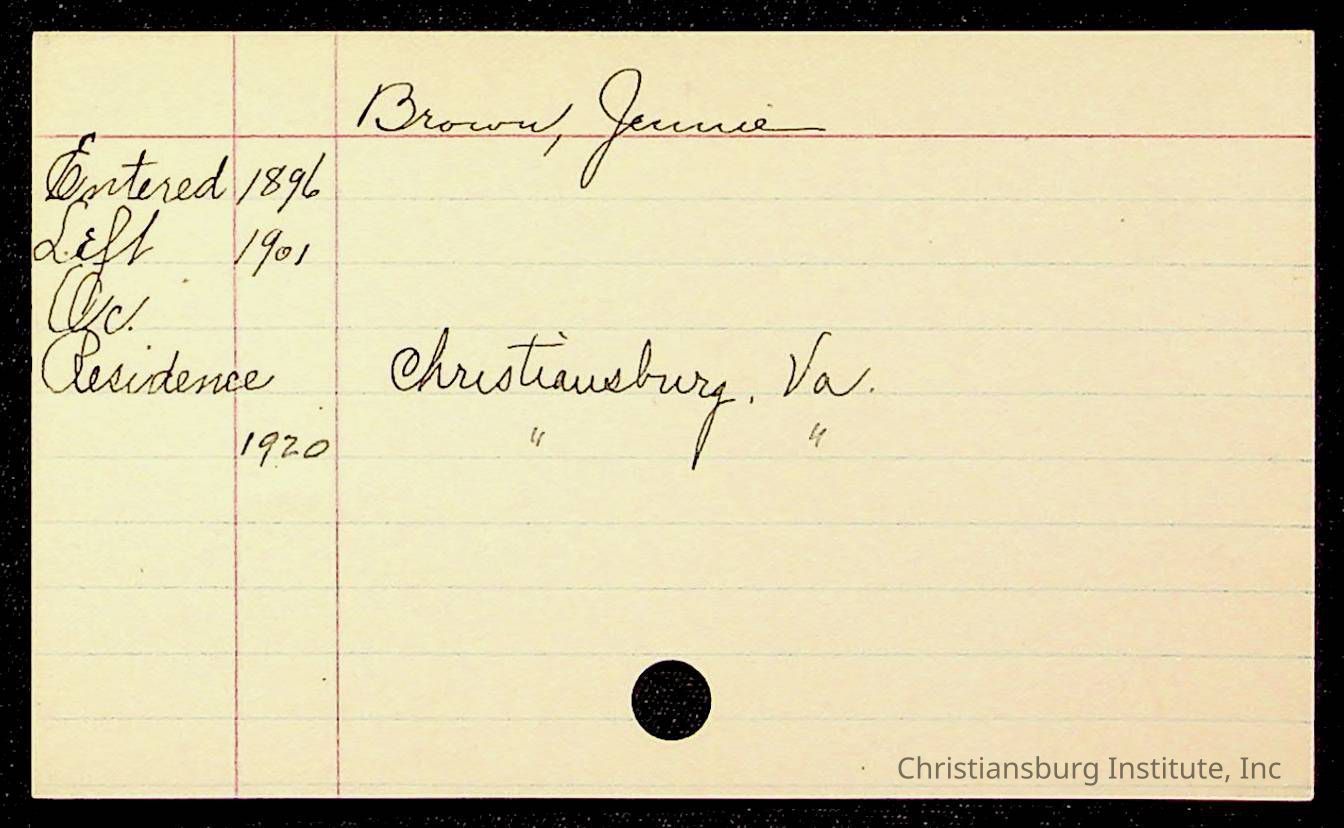 Brown, Jennie
Entered 1896
Left 1901
Oc.
Residence Christiansburg, Va.
1920 " "
Christiansburg Institute, Inc